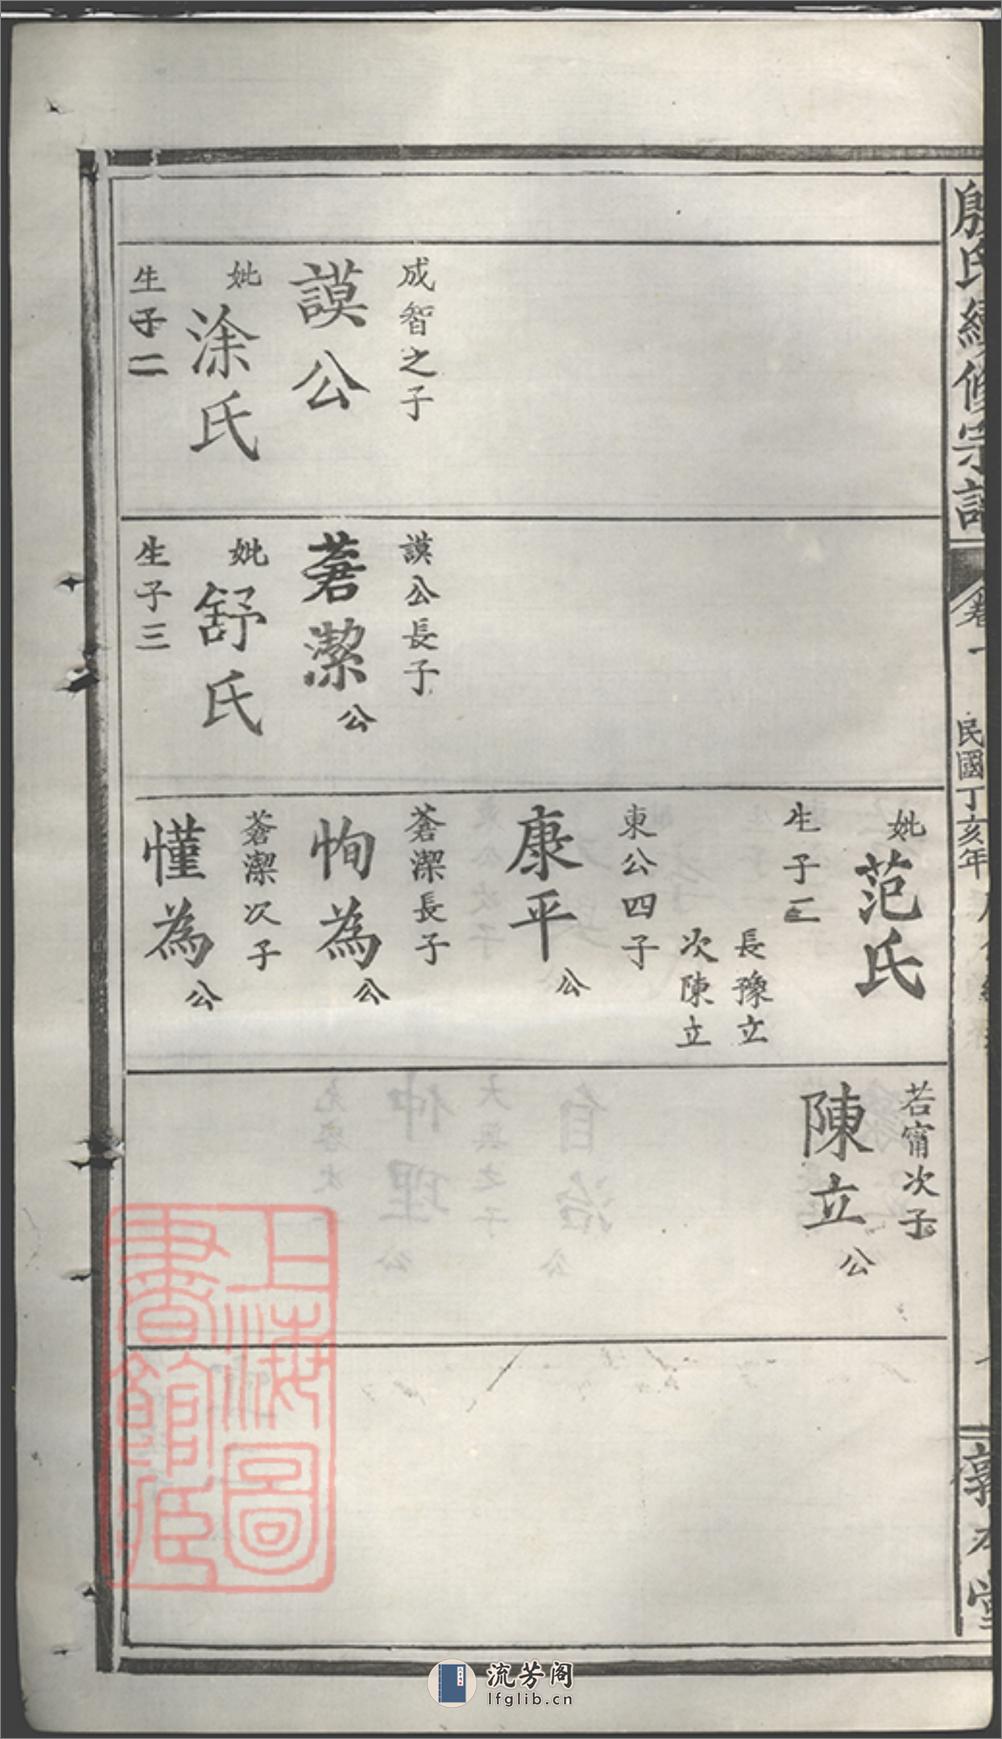 殷氏續修宗譜
卷一
民國丁亥年
敦本堂
成智之子
謨公
妣
涂氏
生子二
謨公長子
蒼潔公
妣
舒氏
生子三
妣
范氏
生子二
長豫立
次陳立
東公四子
康平公
蒼潔長子
恂為公
蒼潔次子
慬為公
若甯次子
陳立公
上海圖
書館藏
流芳阁
lfglib.cn